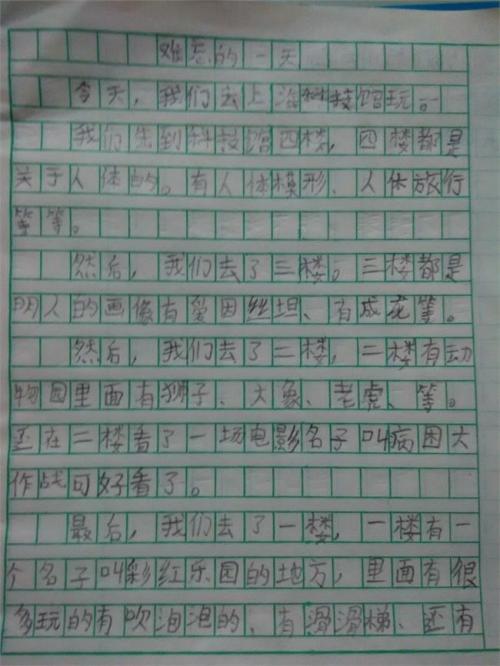 难忘的一天
今天，我们去上海科技馆玩。
我们先到科技馆四楼，四楼都是
关于人体的。有人体模形、人体旅行
等等。
然后，我们去了三楼。三楼都是
明人的画像有爱因丝坦、有成龙等。
然后，我们去了二楼，二楼有动
物园里面有狮子、大象、老虎、等。
还在二楼看了一场电影名子叫病困大
作战可好看了。
最后，我们去了一楼，一楼有一
个名子叫彩红乐园的地方，里面有很
多玩的有吹泡泡的、有滑滑梯、还有